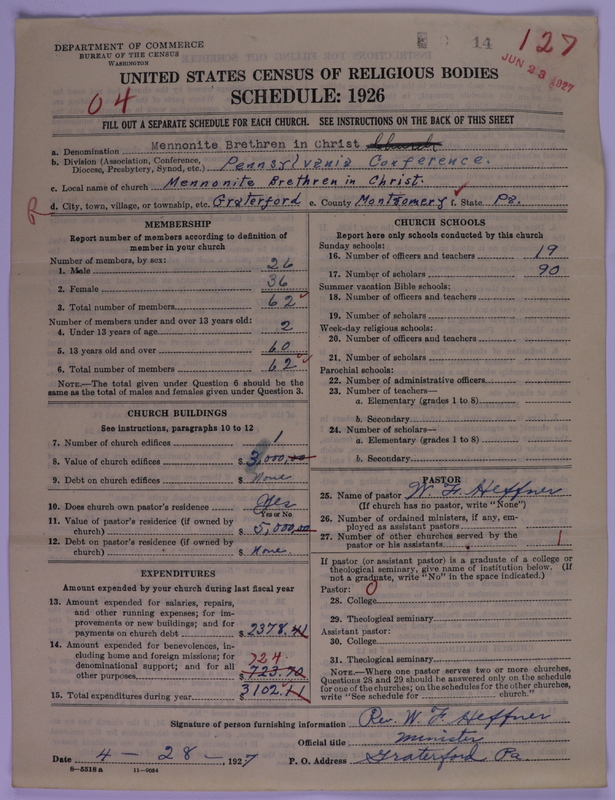 DEPARTMENT OF COMMERCE
BUREAU OF THE CENSUS
WASHINGTON
14
127
JUN 23 1927
UNITED STATES CENSUS OF RELIGIOUS BODIES
04
SCHEDULE: 1926
FILL OUT A SEPARATE SCHEDULE FOR EACH CHURCH. SEE INSTRUCTIONS ON THE BACK OF THIS SHEET
a. Denomination Mennonite Brethren in Christ Church
b. Division (Association, Conference, Diocese, Presbytery, Synod, etc.) Pennsylvania Conference.
c. Local name of church Mennonite Brethren in Christ.
R d. City, town, village, or township, etc. Graterford e. County Montgomery f. State Pa.
MEMBERSHIP
Report number of members according to definition of
member in your church
Number of members, by sex:
1. Male 26
2. Female 36
3. Total number of members 62
Number of members under and over 13 years old:
4. Under 13 years of age 2
5. 13 years old and over 60
6. Total number of members 62
NOTE.—The total given under Question 6 should be the
same as the total of males and females given under Question 3.
CHURCH BUILDINGS
See instructions, paragraphs 10 to 12
7. Number of church edifices 1
8. Value of church edifices $ 3,000,00
9. Debt on church edifices $ None
10. Does church own pastor's residence Yes
Yes or No
11. Value of pastor's residence (if owned by
church) $ 5,000,00
12. Debt on pastor's residence (if owned by
church) $ None
EXPENDITURES
Amount expended by your church during last fiscal year
13. Amount expended for salaries, repairs,
and other running expenses; for im-
provements or new buildings; and for
payments on church debt $ 2378.41
14. Amount expended for benevolences, in-
cluding home and foreign missions; for
denominational support; and for all
other purposes 724. 723.70
15. Total expenditures during year $ 3102.11
CHURCH SCHOOLS
Report here only schools conducted by this church
Sunday schools:
16. Number of officers and teachers 19
17. Number of scholars 90
Summer vacation Bible schools:
18. Number of officers and teachers
19. Number of scholars
Week-day religious schools:
20. Number of officers and teachers
21. Number of scholars
Parochial schools:
22. Number of administrative officers
23. Number of teachers—
a. Elementary (grades 1 to 8)
b. Secondary
24. Number of scholars—
a. Elementary (grades 1 to 8)
b. Secondary
PASTOR
25. Name of pastor W. F. Heffner
(If church has no pastor, write "None")
26. Number of ordained ministers, if any, em-
ployed as assistant pastors
27. Number of other churches served by the
pastor or his assistants 1
If pastor (or assistant pastor) is a graduate of a college or
theological seminary, give name of institution below. (If
not a graduate, write "No" in the space indicated.)
Pastor: 0
28. College
29. Theological seminary
Assistant pastor:
30. College
31. Theological seminary
NOTE.—Where one pastor serves two or more churches,
Questions 28 and 29 should be answered only on the schedule
for one of the churches; on the schedules for the other churches,
write "See schedule for church."
Signature of person furnishing information Rev. W. F. Heffner
Official title Minister
Date 4 — 28 —, 1927 P. O. Address Graterford Pa.
8—5518a 11—9084